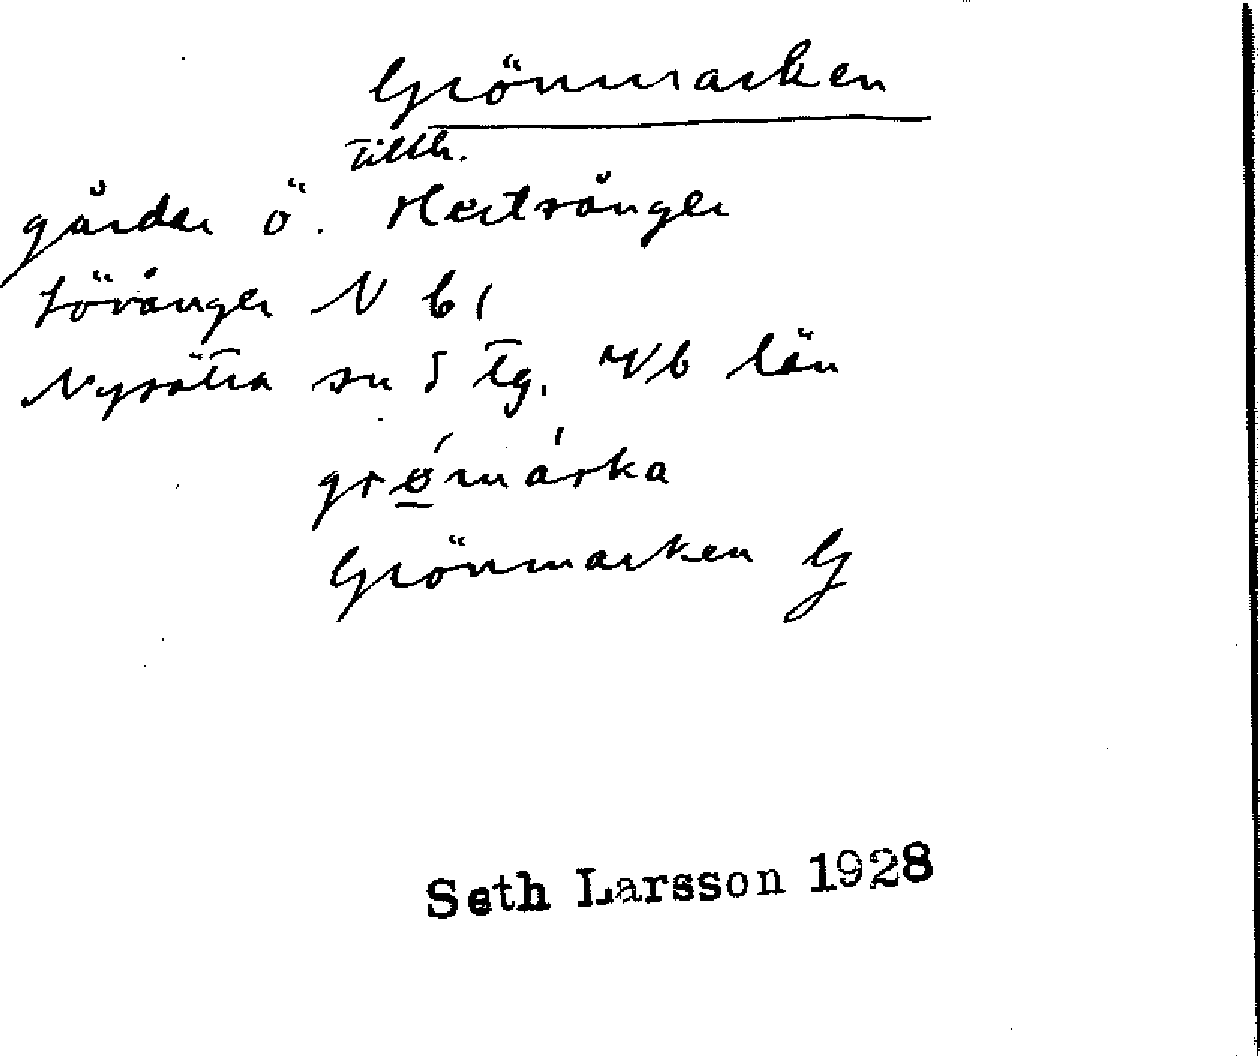 Grönmarken
tillh.
gårdar ö. Hertsånger
Lövånger N bl
Nysätra sn S tg. Vb län
grǿ̲márka
Grönmarken G
Seth Larsson 1928